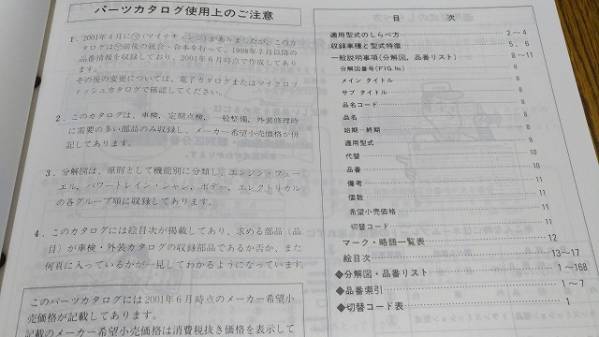 パーツカタログ使用上のご注意
1．2001年4月に
カタログは
品番情報を収録しており、2001年6月時点で作成してあり
ます。
その後の変更については、電子カタログまたはマイクロフ
ィッシュカタログで確認してください。
2．このカタログは、車検、定期点検、一般整備、外装修理時
に需要の多い部品のみ収録し、メーカー希望小売価格が併
記してあります。
3．分解図は、原則として機能別に分類し、エンジン・フュー
エル、パワートレイン・シャシ、ボデー、エレクトリカル
の各グループ順に収録してあります。
4．このカタログには絵目次が掲載してあり、求める部品（品
目）が車検・外装カタログの収録部品であるか否か、また
何頁に入っているかが一見してわかるようになっています。
このパーツカタログには2001年6月時点のメーカー希望小
売価格が記載してあります。
記載のメーカー希望小売価格は消費税抜き価格を表示して
目 次
適用型式のしらべ方 2～4
収録車種と型式特徴 5，6
一般説明事項（分解図、品番リスト） 8～11
分解図番号(FIG.No.) 8
メイン タイトル 8
サブ タイトル 8
品名コード 8
品名 8
始期－終期 8
適用型式
代替 10
品番 10
備考 11
個数 11
希望小売価格 11
切替コード 11
マーク・略語一覧表 12
絵目次 13～17
◆分解図・品番リスト 1～168
◆品番索引 1～7
◆切替コード表 1